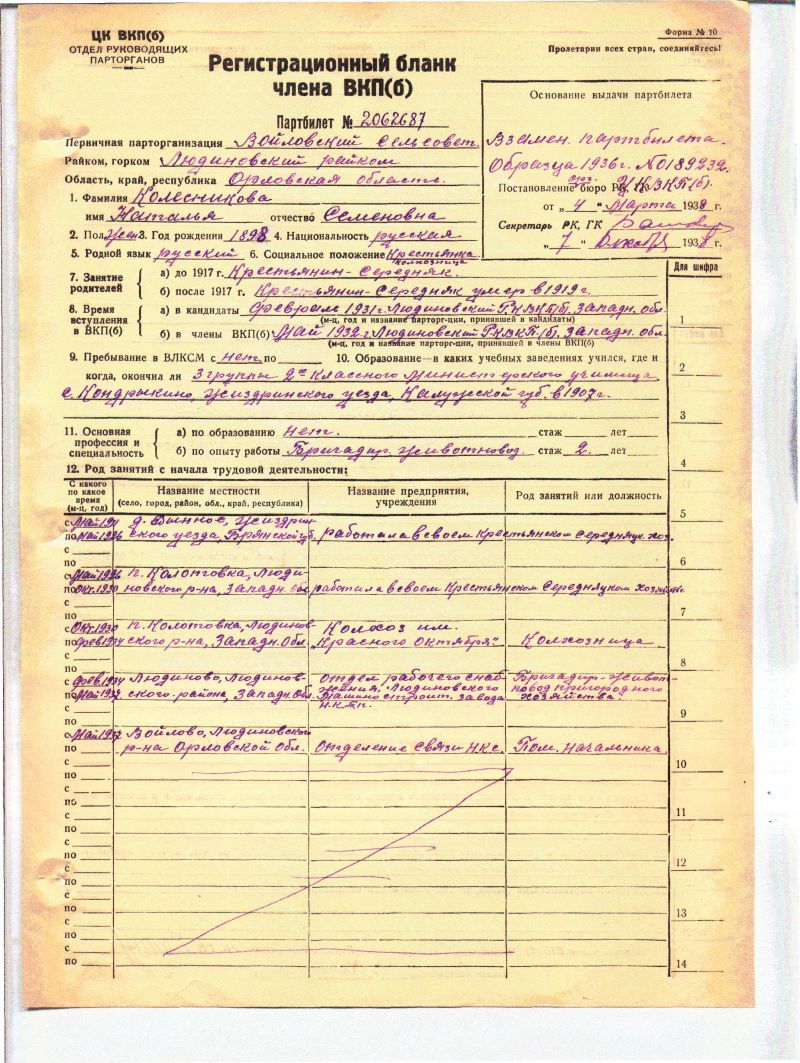 ЦК ВКП(б)
ОТДЕЛ РУКОВОДЯЩИХ
ПАРТОРГАНОВ
Форма № 10
Пролетарии всех стран, соединяйтесь!
Регистрационный бланк
члена ВКП(б)
Партбилет № 2062687
Основание выдачи партбилета
Взамен партбилета
Образца 1936 г. №0189232
Постановление бюро РК, ГК ВКП(б).
от „ 4 “ Марта 1938 г.
Секретарь РК, ГК
„ 7 “ 1938 г.
Первичная парторганизация Войловский Сельсовет
Райком, горком Людиновский райком
Область, край, республика Орловская область.
1. Фамилия Колесникова
имя Наталья отчество Семеновна
2. Пол Жен 3. Год рождения 1898 4. Национальность русская
5. Родной язык русский 6. Социальное положение Крестьянка
колхозница
7. Занятие родителей
а) до 1917 г. Крестьянин-Середняк.
б) после 1917 г. Крестьянин-Середняк умер в 1919 г.
8. Время вступления в ВКП(б)
а) в кандидаты Февраль 1931 г. Людиновский РКВКП/б. Западн. обл.
(м-ц, год и название парторг-ции, принявшей в кандидаты)
б) в члены ВКП(б) Май 1932 г. Людиновский РКВКП/б. Западн. обл.
(м-ц, год и название парторг-ции, принявшей в члены ВКП(б)
9. Пребывание в ВЛКСМ с нет. по 10. Образование—в каких учебных заведениях учился, где и
когда, окончил ли 3 группы 2х классного министерского училища
с. Кондрыкино, Жиздринского уезда, Калужской губ. в 1907 г.
11. Основная профессия и специальность
а) по образованию нет. стаж лет
б) по опыту работы Бригадир. животновод. стаж 2. лет
12. Род занятий с начала трудовой деятельности:
Для шифра
1
2
3
4
5
6
7
8
9
10
11
12
13
14
С какого по какое время (м-ц, год)
Название местности
(село, город, район, обл., край, республика)
Название предприятия, учреждения
Род занятий или должность
с Май 1911 д. Жиздрин-
по Май 1926 ского уезда, Брянской губ. работала в своем крестьянском середняцк. хоз.
с
по
с Май 1926 п. Колотовка, Люди-
по Окт. 1930 новского р-на, Западн. обл работала в своем Крестьянском Середняцком хозяйстве
с
по
с Окт. 1930 п. Колотовка, Людинов- Колхоз им.
по Фев. 1934 ского р-на, Западн. Обл. „Красного Октября“ Колхозница
с
по
с Фев. 1934 Людиново, Людинов- Отдел рабочего снаб- Бригадир-живот-
по Май 1937 ского района, Западн. Обл. жения, Людиновского новод пригородного
Машиностроит. завода хозяйства.
Н.К.Т.П.
с
по
с Май 1937 Войлово, Людиновского
по р-на Орловской Обл. Отделение Связи НКС. Пом. начальника.
с
по
с
по
с
по
с
по
с
по
с
по
с
по
с
по